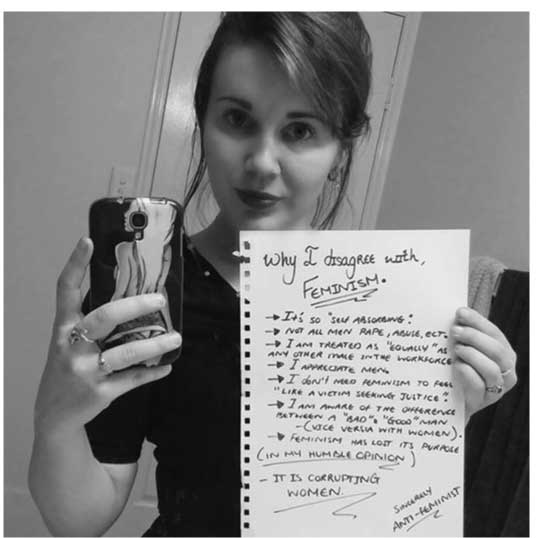 Why I disagree with,
FEMINISM.
→ It's so "self absorbing".
→ Not all men rape, abuse, ect.
→ I am treated as "equally" as
any other male in the workforce
→ I appreciate men.
→ I don't need feminism to feel
"like a victim seeking justice".
→ I am aware of the difference
between a "bad" & "good" man
-(vice versia with women).
→ Feminism has lost its purpose
(in my humble opinion)
- It is corrupting
women.
sincerely
anti-feminist